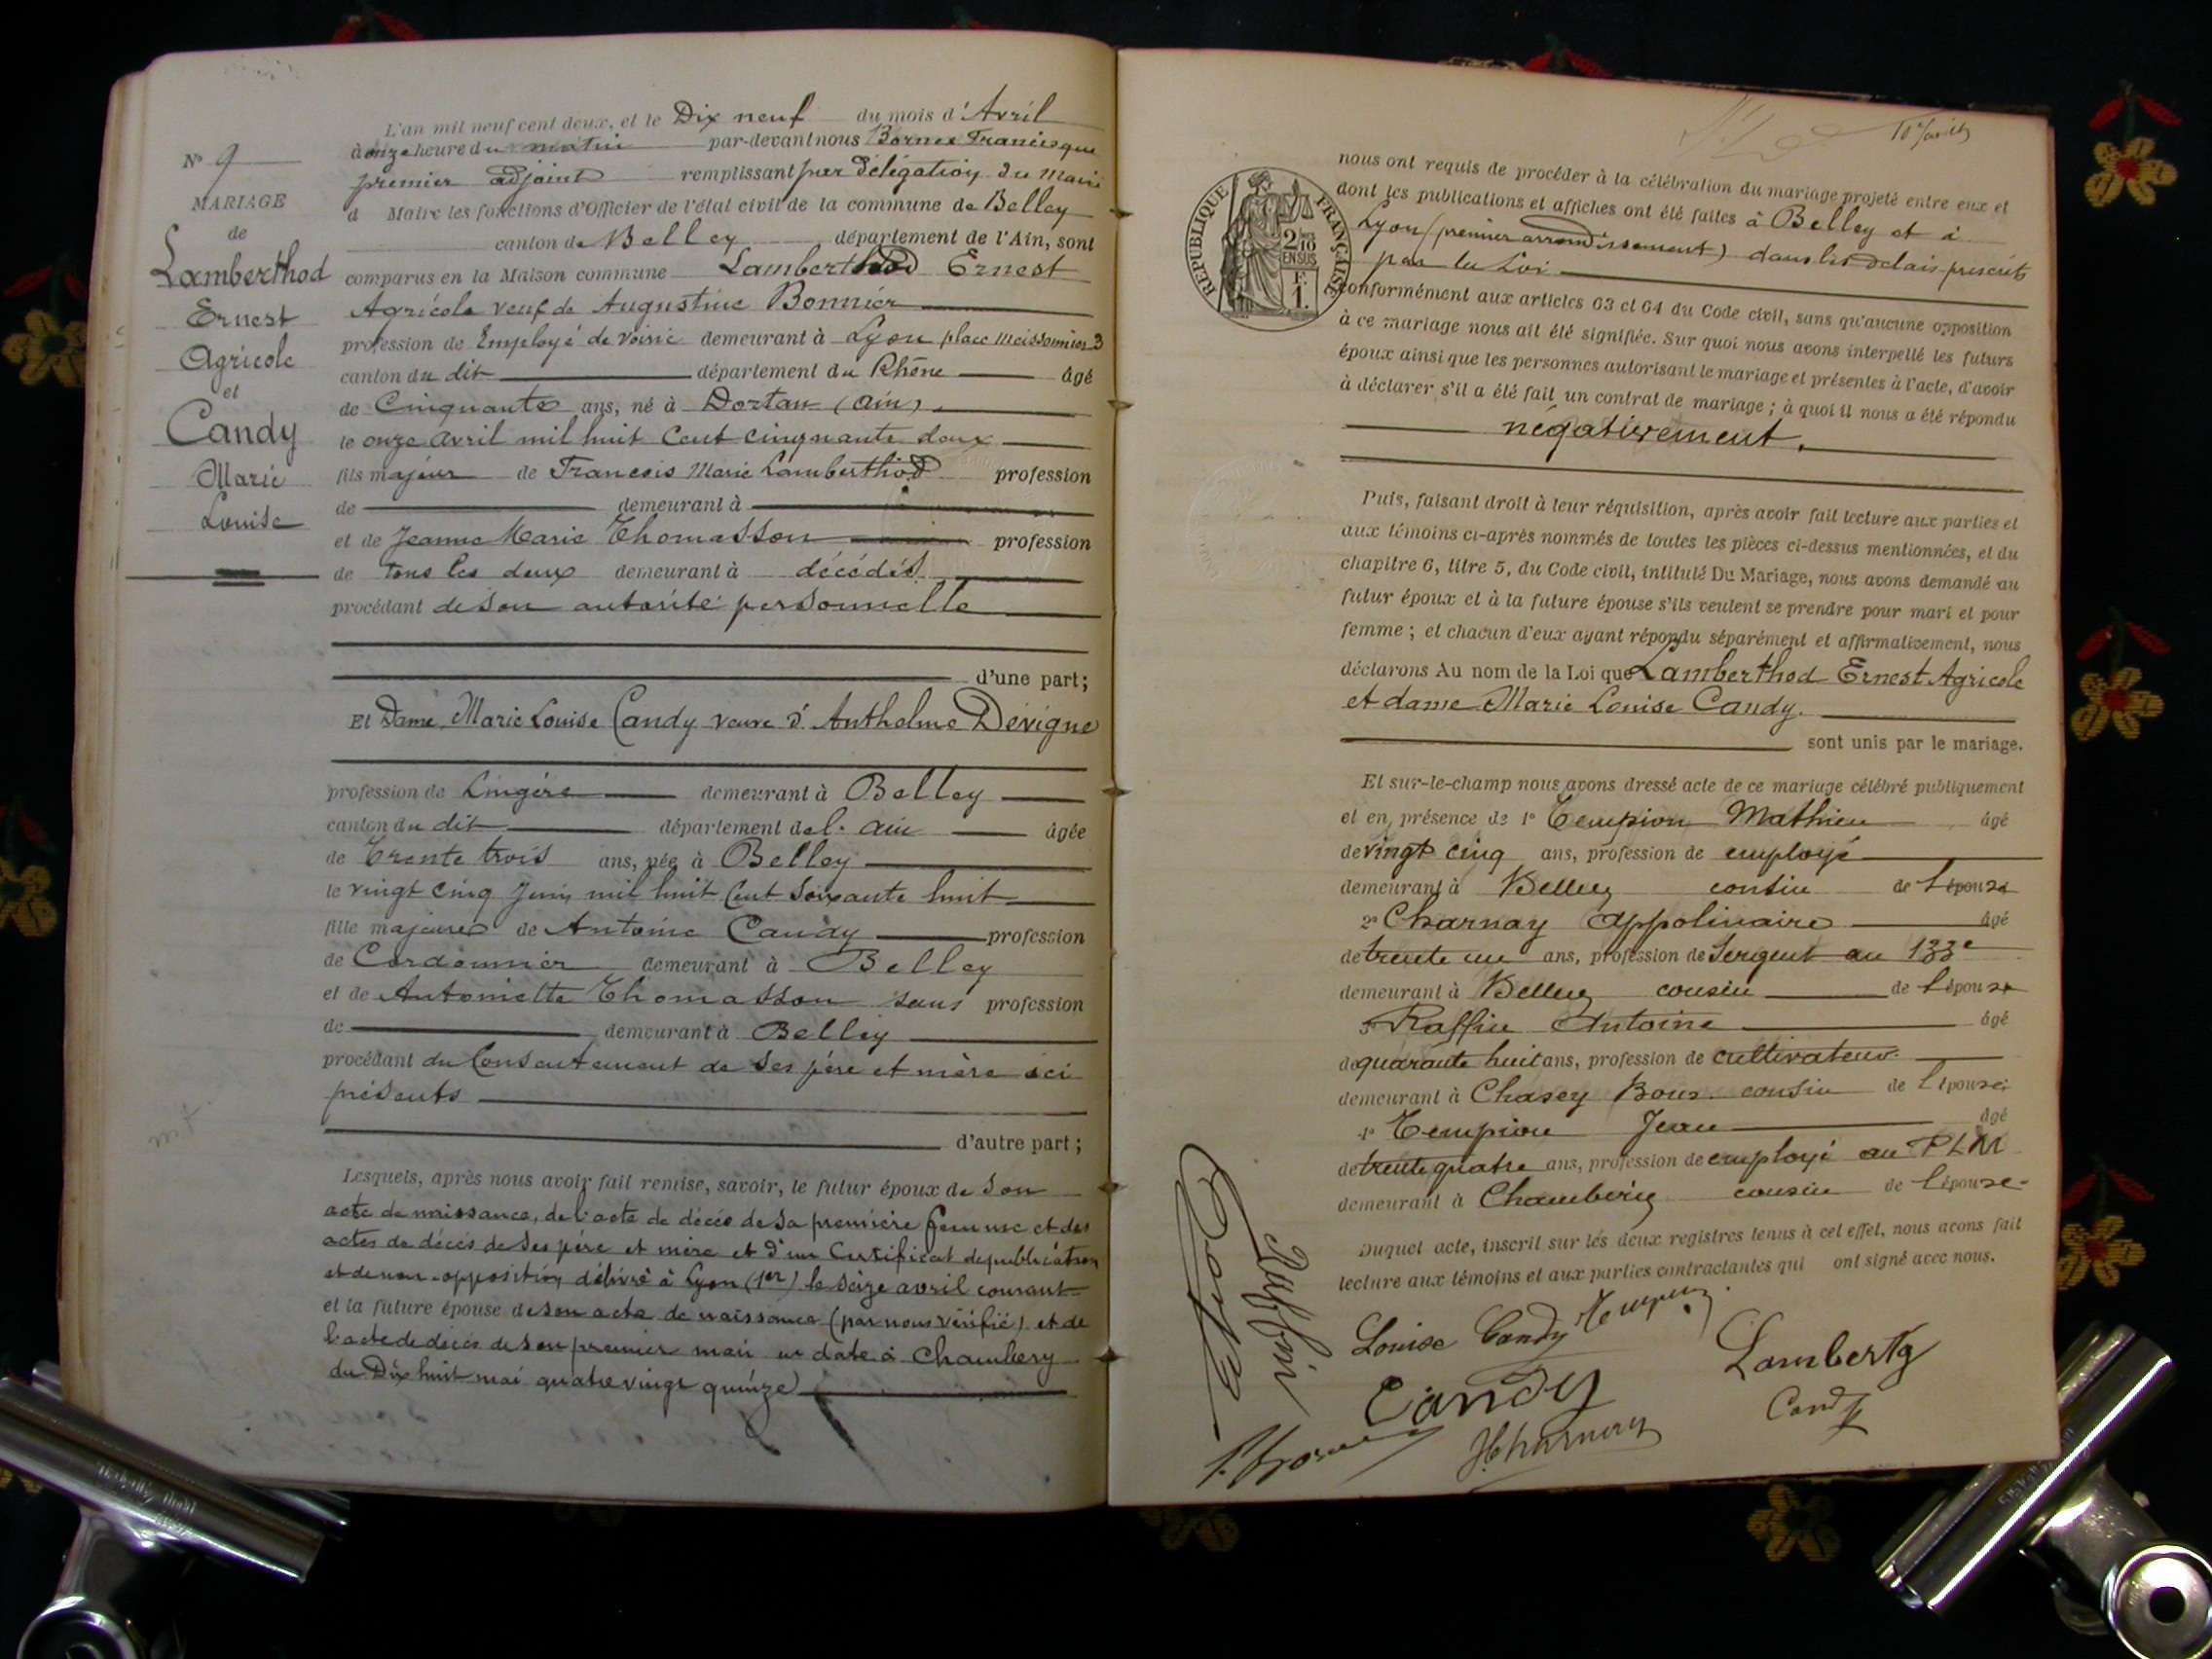 L'an mil neuf cent deux, et le Dix neuf du mois d'Avril
à onze heure du matin par-devant nous Bornex Francisque
premier adjoint remplissant par délégation du Maire
d Maire les fonctions d'Officier de l'état civil de la commune de Belley
canton de Belley département de l'Ain, sont
comparus en la Maison commune Lamberthod Ernest
Agricole veuf de Augustine Bonnier
profession de Employé de voirie demeurant à Lyon place Meissonnier 3
canton du dit département du Rhône âgé
de Cinquante ans, né à Dortan (Ain)
le onze avril mil huit cent cinquante deux
fils majeur de François Marie Lamberthod profession
de demeurant à
et de Jeanne Marie Thomasson profession
de tous les deux demeurant à décédés
procédant de son autorité personnelle
d'une part;
Et Dame Marie Louise Candy veuve d'Anthelme Dévigne
profession de Lingère demeurant à Belley
canton du dit département de l'Ain âgée
de Trente trois ans, née à Belley
le vingt cinq Juin mil huit cent soixante huit
fille majeure de Antoine Candy profession
de Cordonnier demeurant à Belley
et de Antoinette Thomasson sans profession
de demeurant à Belley
procédant du Consentement de ses père et mère ici
présents
d'autre part;
Lesquels, après nous avoir fait remise, savoir, le futur époux de son
acte de naissance, de l'acte de décès de sa première femme et des
actes de décès de ses père et mère et d'un Certificat de publication
et de non-opposition délivré à Lyon (1er) le seize avril courant
et la future épouse de son acte de naissance (par nous vérifié) et de
l'acte de décès de son premier mari en date à Chambéry
du Dix huit mai quatre vingt quinze
N° 9
MARIAGE
de
Lamberthod
Ernest
Agricole
et
Candy
Marie
Louise
RÉPUBLIQUE FRANÇAISE
2/10
EN SUS
F.
1.
nous ont requis de procéder à la célébration du mariage projeté entre eux et
dont les publications et affiches ont été faites à Belley et à
Lyon (premier arrondissement) dans les délais prescrits
par la Loi
conformément aux articles 63 et 64 du Code civil, sans qu'aucune opposition
à ce mariage nous ait été signifiée. Sur quoi nous avons interpellé les futurs
époux ainsi que les personnes autorisant le mariage et présentes à l'acte, d'avoir
à déclarer s'il a été fait un contrat de mariage; à quoi il nous a été répondu
négativement.
Puis, faisant droit à leur réquisition, après avoir fait lecture aux parties et
aux témoins ci-après nommés de toutes les pièces ci-dessus mentionnées, et du
chapitre 6, titre 5, du Code civil, intitulé Du Mariage, nous avons demandé au
futur époux et à la future épouse s'ils veulent se prendre pour mari et pour
femme; et chacun d'eux ayant répondu séparément et affirmativement, nous
déclarons Au nom de la Loi que Lamberthod Ernest Agricole
et dame Marie Louise Candy.
sont unis par le mariage.
Et sur-le-champ nous avons dressé acte de ce mariage célébré publiquement
et en présence de 1° Tempion Mathieu âgé
de vingt cinq ans, profession de employé
demeurant à Belley cousin de l'épouse
2° Charnay Appolinaire âgé
de trente un ans, profession de Sergent au 133e
demeurant à Belley cousin de l'épouse
3° Raffin Antoine âgé
de quarante huit ans, profession de cultivateur
demeurant à Chasey Bons cousin de l'épouse
4° Tempion Jean âgé
de trente quatre ans, profession de employé au PLM
demeurant à Chambéry cousin de l'épouse
Duquel acte, inscrit sur les deux registres tenus à cet effet, nous avons fait
lecture aux témoins et aux parties contractantes qui ont signé avec nous.
Louise Candy
Lambertg
Candy
Candy
Raffin